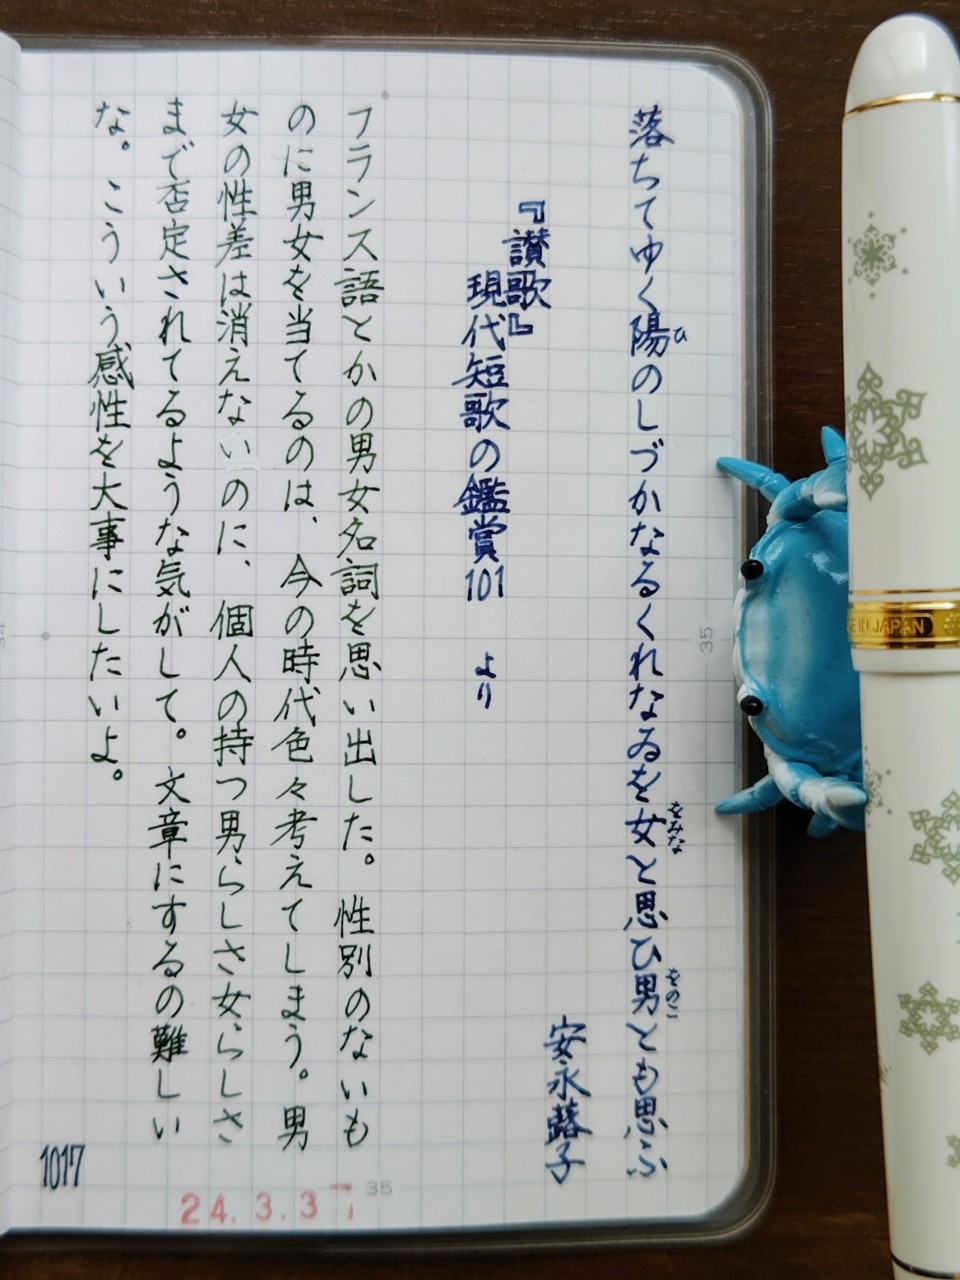 落ちてゆく陽のしづかなるくれなゐを女と思ひ男とも思ふ
ひ
をみな
をのこ
安永蕗子
『讃歌』
現代短歌の鑑賞101 より
フランス語とかの男女名詞を思い出した。性別のないも
のに男女を当てるのは、今の時代色々考えてしまう。男
女の性差は消えないのに、個人の持つ男らしさ女らしさ
まで否定されてるような気がして。文章にするの難しい
な。こういう感性を大事にしたいよ。
1017
24.3.3
35
35
JAPAN